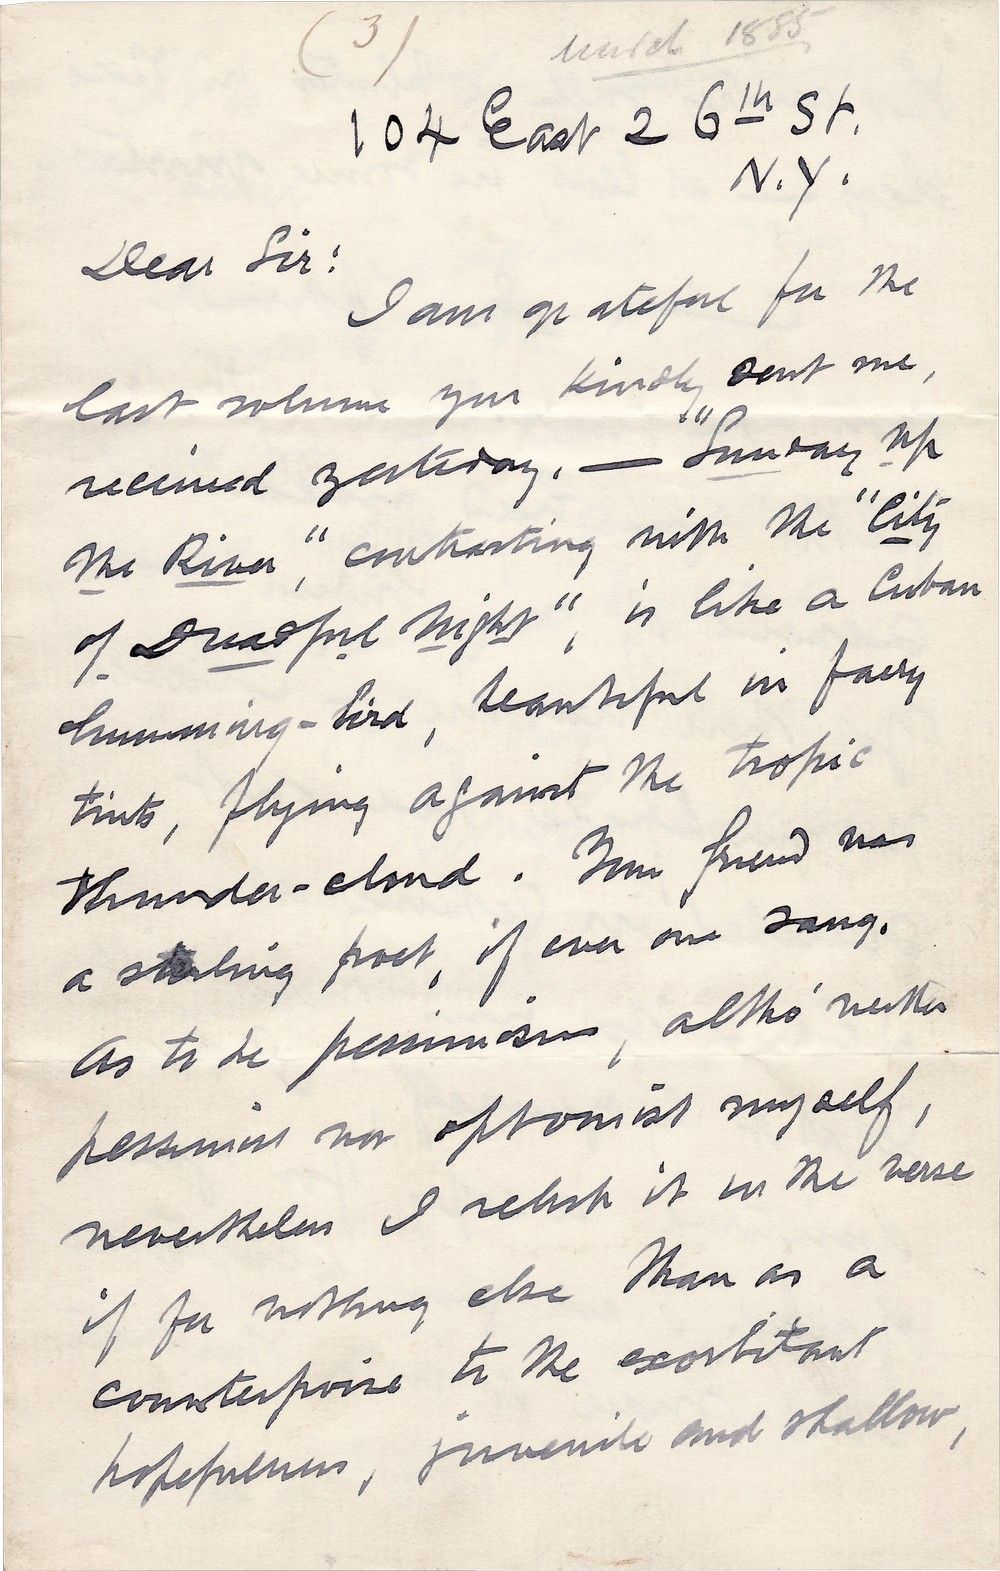 (3)
March 1885
104 East 26th St.
N.Y.
Dear Sir:
I am grateful for the
last volume you kindly sent me,
received yesterday. — "Sunday up
the River", contrasting with the "City
of Dreadful Night", is like a Cuban
humming-bird, beautiful in faery
tints, flying against the tropic
thunder-cloud. Your friend was
a sterling poet, if ever one sang.
As to the pessimism, altho' neither
pessimist nor optomist myself,
nevertheless I relish it in the verse
if for nothing else than as a
counterpoise to the exorbitant
hopefulness, juvenile and shallow,